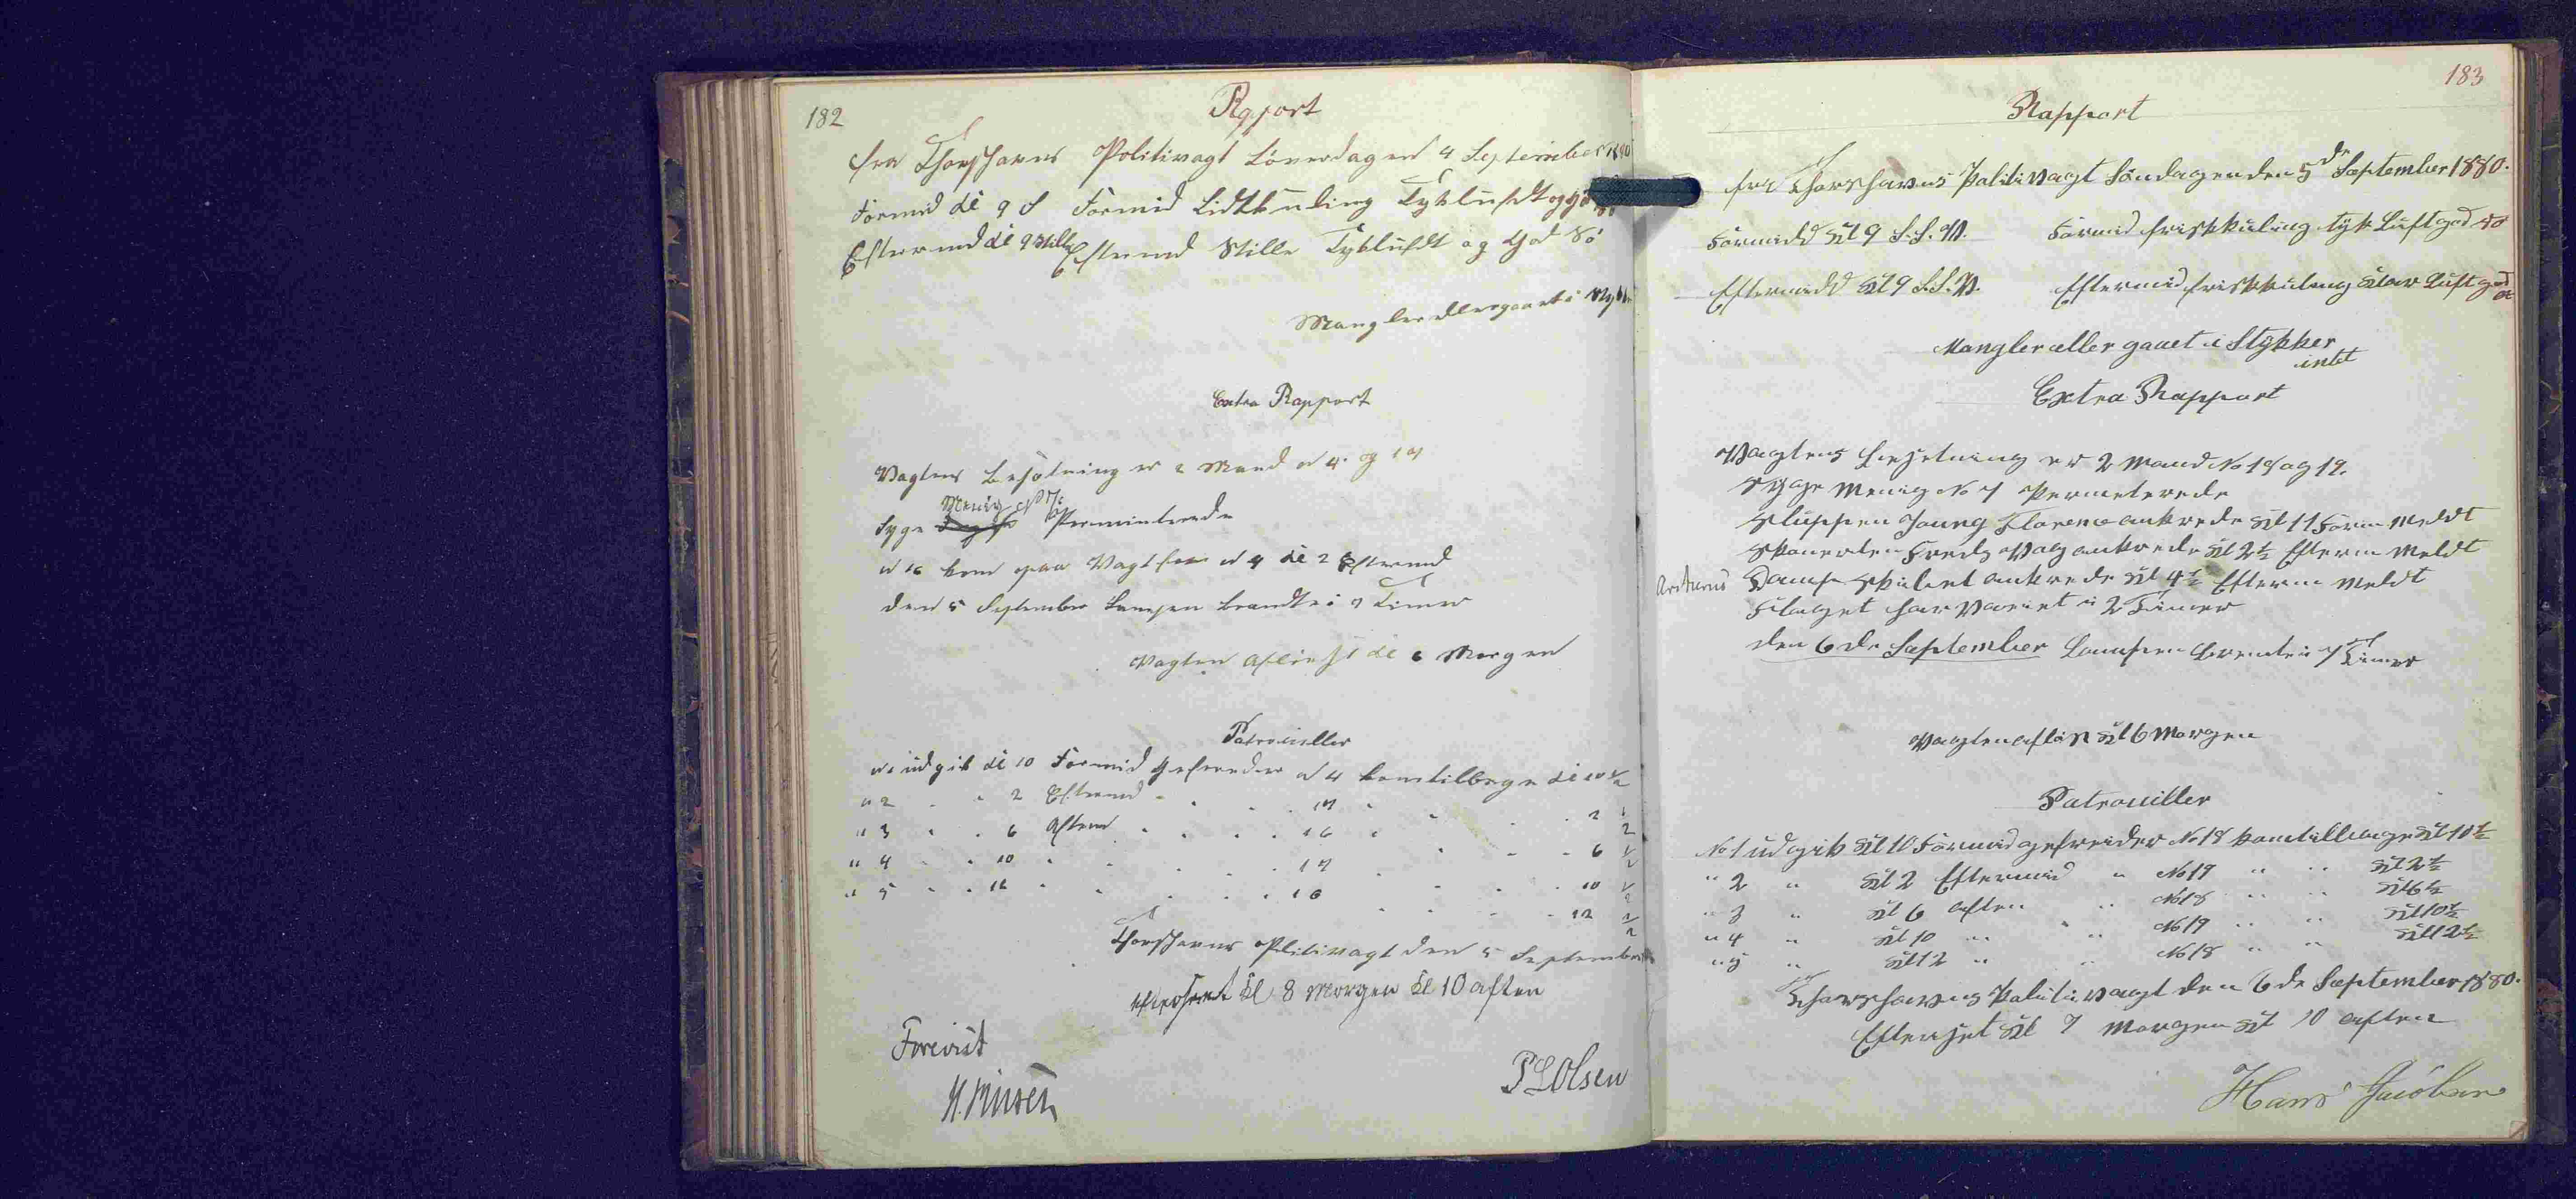 182
Rapport
fra Thorshavns Politivagt Löverdagen d 4 September 1880
Formid Kl 9 S Formid Lidtkuling Tyklufdt og god Sö
Eftermd Kl 9 Stille Eftermd Stille Tyklufdt og God Sö
Mangler ellergaaet i Stykk
Extra Rapport
Vagtens besætning er 2 Mand N 4 og 17
Syge Menig N 7 Perminterede
N 16 kom paa Vagt N 4 Kl 2 Eftermd
den 5 September Lampen brændte i 7 Timer
Vagten Aflöst Kl 6 Morgen
Patrouiller
N 1 udgik Kl 10 Formid Gefreider N 4 komtilbage Kl 10 1/2
" 2 " " 2 Eftermd " " " 17 " " " 2 1/2
" 3 " " 6 Aften " " " 16 " " " 6 1/2
" 4 " " 10 " " " " 17 " " " 10 1/2
" 5 " " 12 " " " " 16 " " " 12 1/2
Thorshavns Politivagt den 5 September
Efterseet Kl 8 Morgen Kl 10 aften
Forevist
P L Olsen
183
Rapport
fra Thorshavns Politivagt Söndagen den 5de September 1880.
Formidd Kl 9 S.S.V. Formid friskkuling tyk Luft god Sö
Eftermidd Kl 9 S.S.V. Eftermid friskkuling klar Luft god Sö
Mangler eller gaaet i Stykker
intet
Extra Rapport
Vagtens besetning er 2 Mand No 18 og 19.
Syge Menig No 7 Permeterede
Sluppen Young Florence ankrede Kl 11 Form Meldt
Skonerten Freds Vag ankrede Kl 2 1/2 Efterm Meldt
Arcturus Dampskibet ankrede Kl 4 1/2 Efterm Meldt
Flaget har Væriet i 2 Timer
den 6de September Lampen brendte i 7 Timer
Vagten aflöst Kl 6 Morgen
Patrouiller
No 1 udgik Kl 10 Formid gefreider No 18 komtillbage Kl 10 1/2
" 2 " Kl 2 Eftermid " No 19 " " Kl 2 1/2
" 3 " Kl 6 aften " No 18 " " Kl 6 1/2
" 4 " Kl 10 " " No 19 " " Kl 10 1/2
" 5 " Kl 12 " " No 18 " " Kl 12 1/2
Thorshavns Politivagt den 6de September 1880.
Efterset Kl 7 Morgen Kl 10 aften
Hans Jacobsen